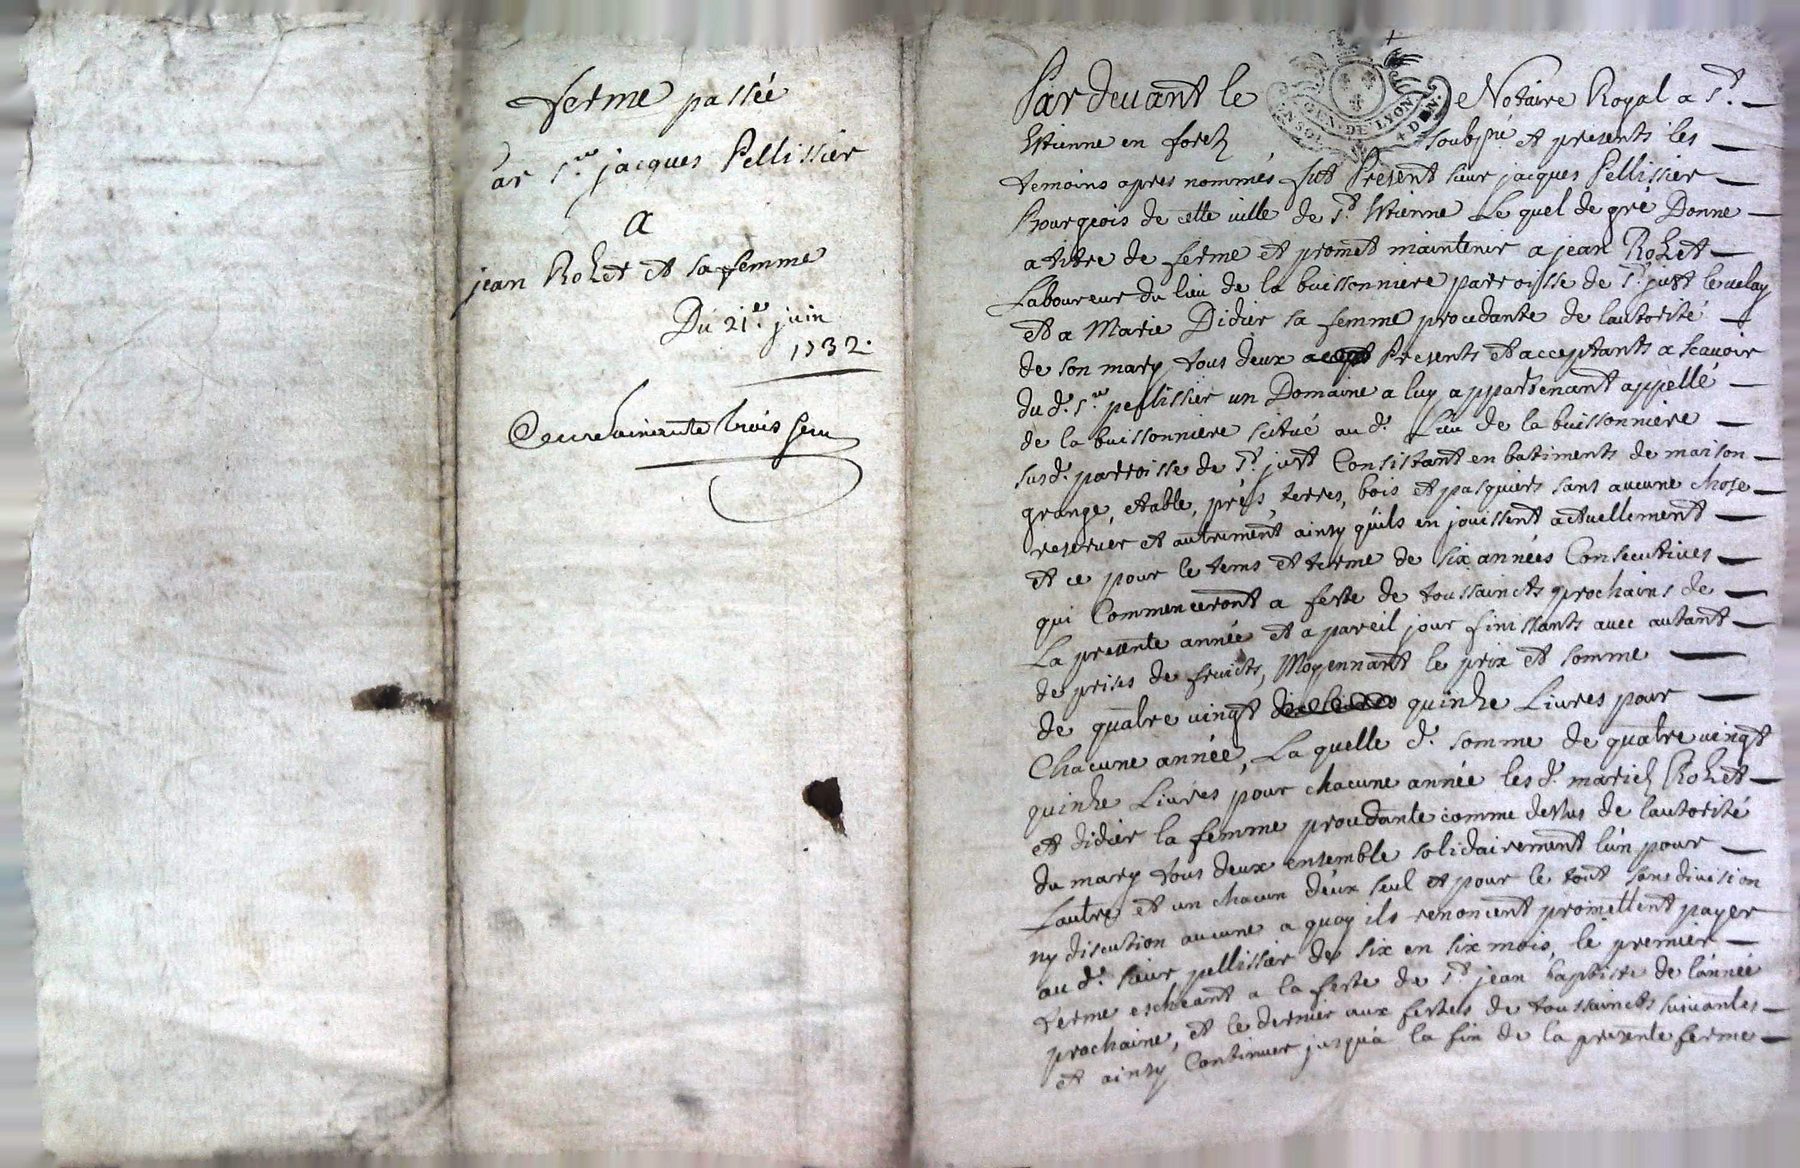 ferme passée
ar S.ur jacques Pellissier
a
jean Rozet et sa femme
Du 21.e juin
1732.
Par devant le Notaire Royal a S.t
GEN. DE LYON
Etienne en forez soubs.né et presents les
temoins apres nommés fut Present sieur jacques Pellissier
Bourgeois de cette ville de S.t Etienne Le quel de gré Donne
a titre de ferme et promet maintenir a jean Rozet
Laboureur du lieu de la buissonniere parroisse de S.t just le velay
et a Marie Didier sa femme procedante de lautorité
de son mary tous deux Presents et acceptants a scavoir
du d. S.ur pellissier un Domaine a luy appartenant appellé
de la buissonniere scitué au d. Lieu de la buissonniere
susd. parroisse de S.t just Consistant en batiments de maison
grange, etable, prés, terres, bois et pasquiers sans aucune chose
reserver et autrement ainsy quils en jouissent actuellement
et ce pour le tems et terme de six années Consecutives
qui Commenceront a feste de toussaincts prochains de
La presente année et a pareil jour finissants avec autant
de prises de fruicts, Moyennant le prix et somme
de quatre vingt quinze Livres pour
Chacune année, La quelle d. somme de quatre vingt
quinze Livres pour chacune année les d. mariez Rozet
et didier la femme procedante comme dessus de lautorité
du mary tous deux ensemble solidairement lun pour
Lautre et un chacun deux seul et pour le tout sans division
ny discution aucune a quoy ils renoncent promettent payer
au d. sieur pellissier de six en six mois, le premier
terme escheant a la feste de S.t jean baptiste de lannée
prochaine, et le dernier aux festes de toussaincts suivantes
et ainsy Continuer jusqua la fin de la presente ferme